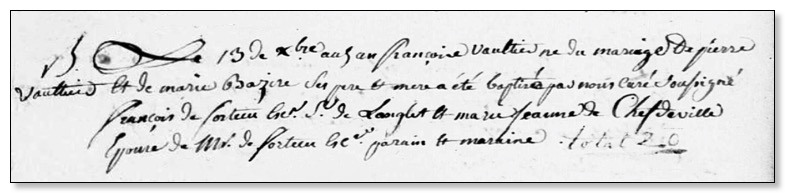 Le 13 de xbre audt an françoise vaultier ne du mariage De pierre
vaultier et de marie Bazire ses pere et mere a été baptisée par nous curé soussigné
françois de sorteu Sr. de Langlet et marie jeanne de Chefdeville
Epouse de Mr. de sorteu parain et maraine. total